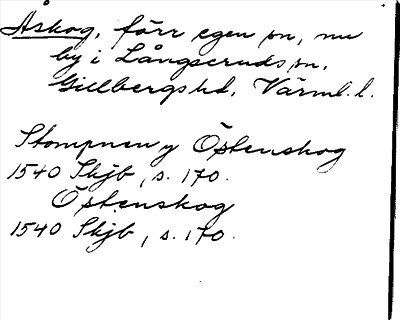 Åskog, förr egen sn, nu
by i Långseruds sn,
Gillbergs hd, Värml. l.
Stompnen y Östenskog
1540 Skjb, s. 170.
Östenskog
1540 Skjb, s. 170.